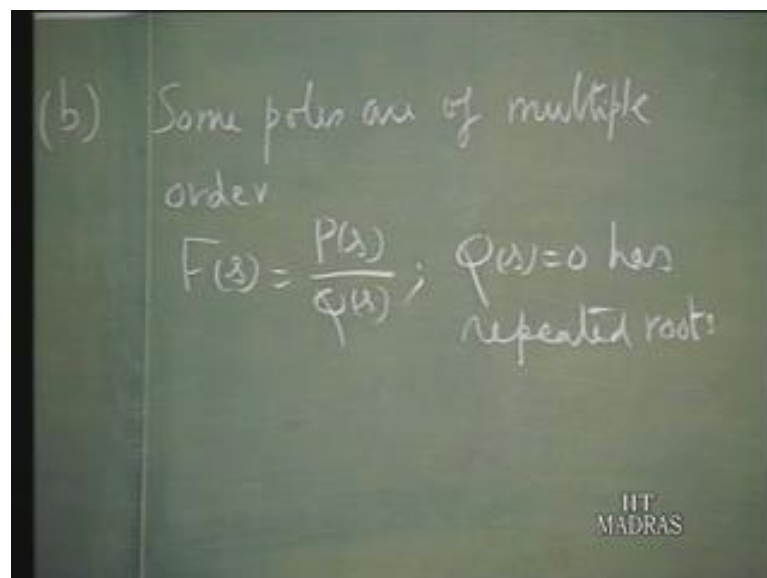 (b) Some poles are of multiple
order
F(s) = P(s)/Q(s) ; Q(s)=0 has
repeated roots
IIT
MADRAS